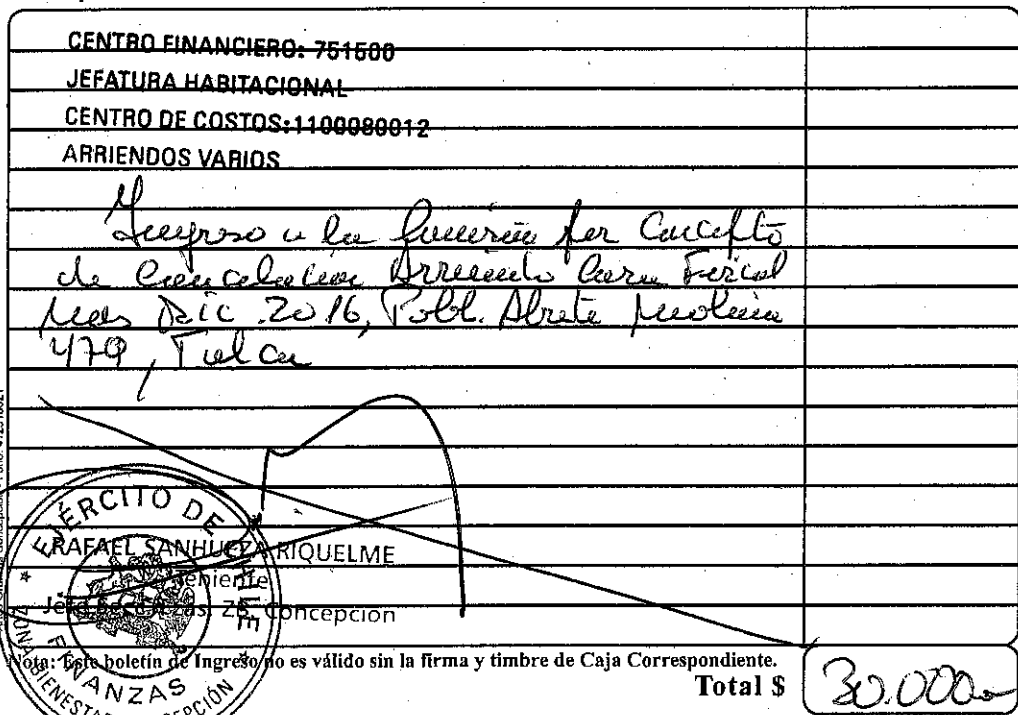 CENTRO FINANCIERO: 751500
JEFATURA HABITACIONAL
CENTRO DE COSTOS:1100080012
ARRIENDOS VARIOS
Ingreso a la por Concepto
de Cancelación Arriendo Casa Fiscal
Mes Dic. 2016, Pobl. Abate Molina
479, Talca
EJÉRCITO DE CHILE
RAFAEL SANHUEZA RIQUELME
Teniente
Concepción
FINANZAS
Nota: Este boletín de Ingreso no es válido sin la firma y timbre de Caja Correspondiente.
Total $ 30.000